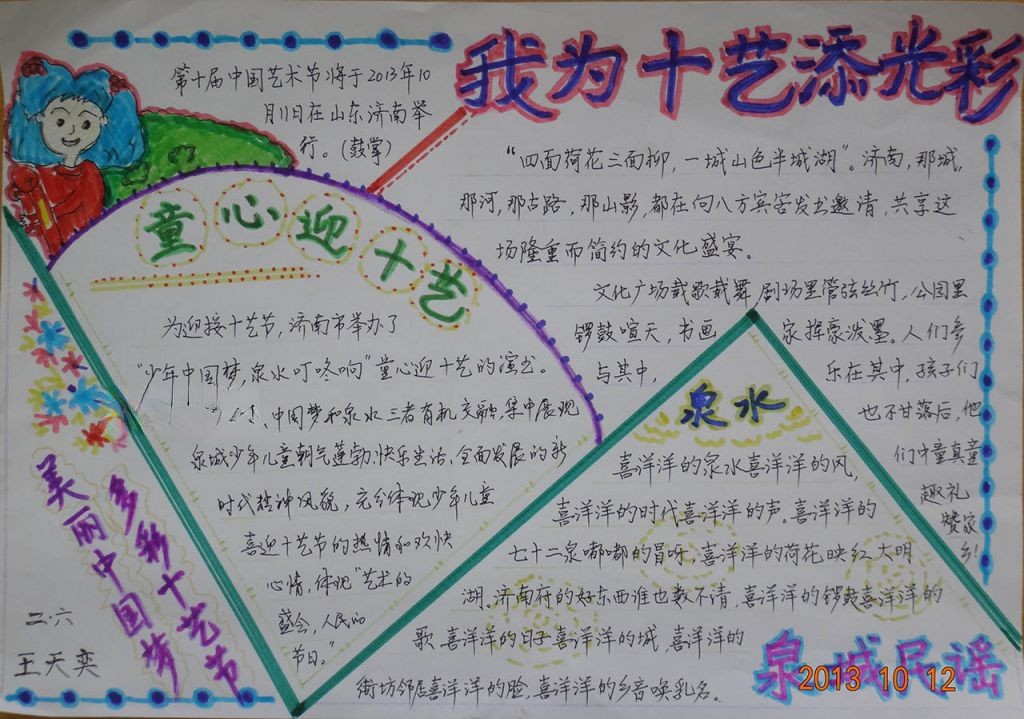 我为十艺添光彩
第十届中国艺术节将于2013年10
月11日在山东济南举
行。(鼓掌)
童心迎十艺
为迎接十艺节,济南市举办了
“少年中国梦,泉水叮咚响”童心迎十艺的演出。
、中国梦和泉水三者有机交融,集中展现
泉城少年儿童朝气蓬勃、快乐生活、全面发展的新
时代精神风貌,充分体现少年儿童
喜迎十艺节的热情和欢快
心情,体现“艺术的
盛会,人民的
节日。”
“四面荷花三面柳,一城山色半城湖”。济南,那城,
那河,那古路,那山影,都在向八方宾客发出邀请,共享这
场隆重而简约的文化盛宴。
文化广场载歌载舞,剧场里管弦丝竹,公园里
锣鼓喧天,书画家挥豪泼墨。人们参
与其中,乐在其中,孩子们
也不甘落后,他
们中童真童
趣礼
赞家
乡!
泉水
喜洋洋的泉水喜洋洋的风,
喜洋洋的时代喜洋洋的声。喜洋洋的
七十二泉嘟嘟的冒呀,喜洋洋的荷花映红大明
湖。济南府的好东西谁也数不清,喜洋洋的锣鼓喜洋洋的
歌喜洋洋的日子喜洋洋的城,喜洋洋的
街坊邻居喜洋洋的脸,喜洋洋的乡音唤乳名。
泉城民谣
美丽中国梦
多彩十艺节
二·六
王天奕
2013 10 12